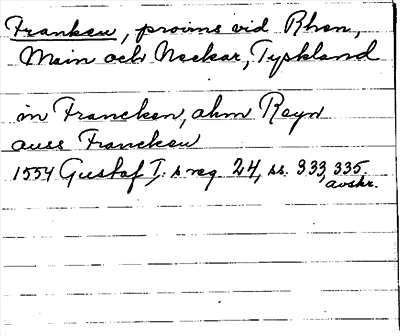 Franken, provins vid Rhen,
Main och Neckar, Tyskland
in Francken, ahm Reyn
auss Francken
1554 Gustaf I. s reg. 24, ss. 333, 335.
avskr.